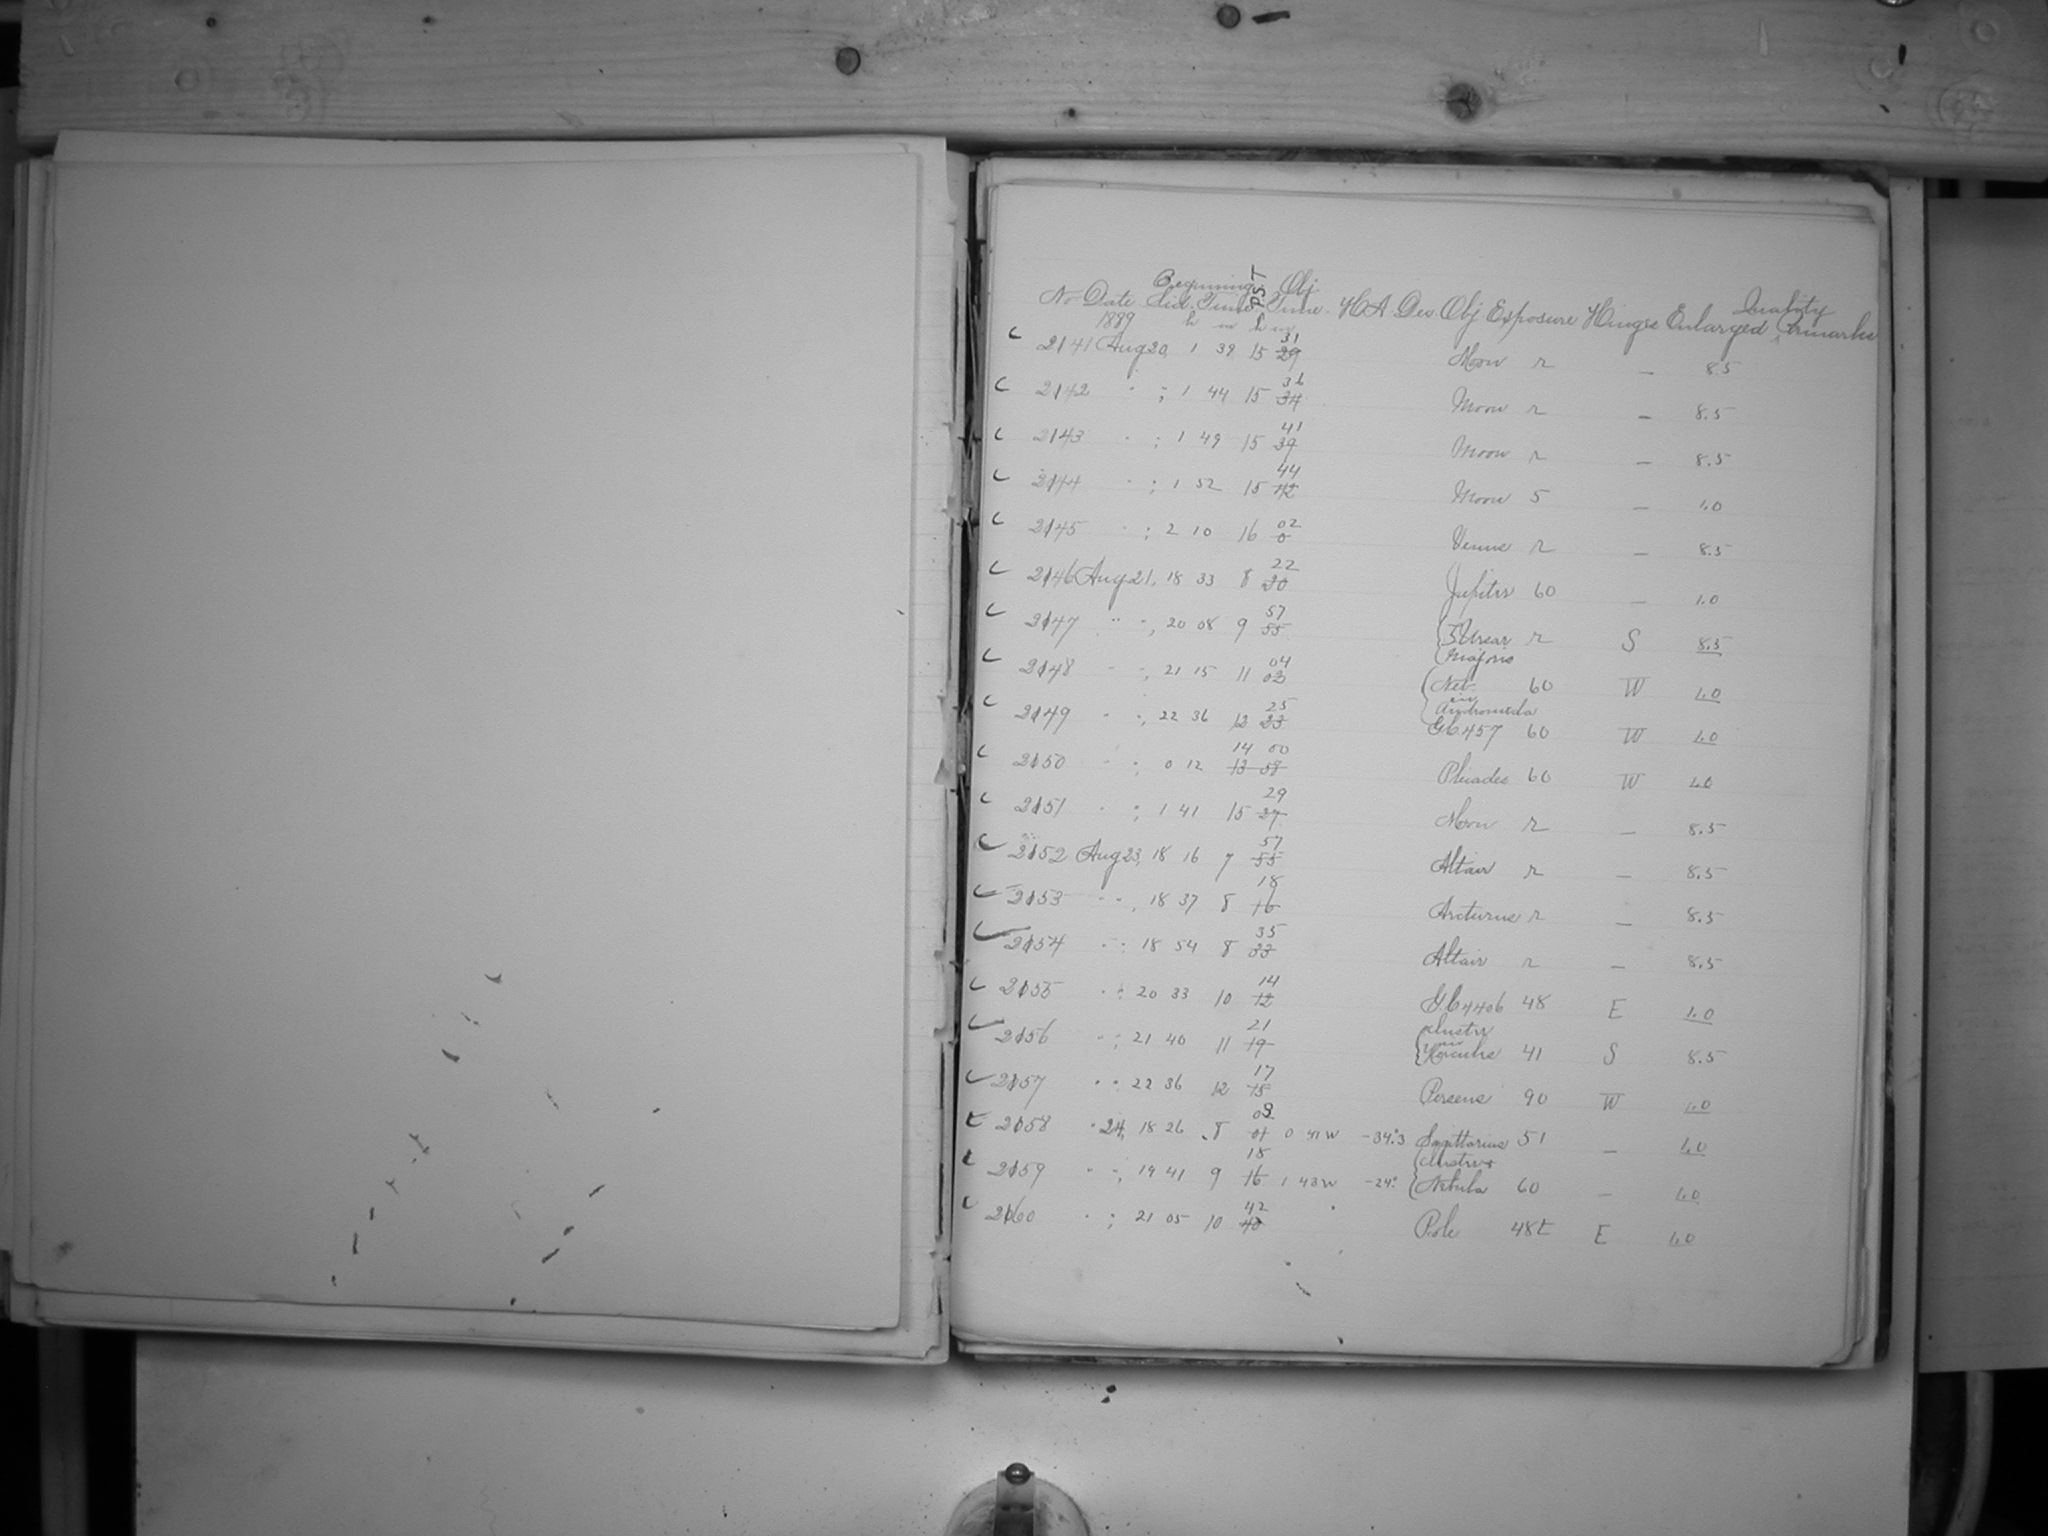 Beginning Obj
No Date Sid. Time PST Time HA Dec Obj Exposure Hinge Enlarged Quality Remarks
1889 h m h m
2141 Aug 20, 1 39 15 31 29 Moon r — 8.5
2142 " ; 1 44 15 36 34 Moon r — 8.5
2143 " ; 1 49 15 41 39 Moon r — 8.5
2144 " ; 1 52 15 44 42 Moon 5 — 1.0
2145 " ; 2 10 16 02 0 Venus r — 8.5
2146 Aug 21, 18 33 8 22 20 Jupiter 60 — 1.0
2147 " ", 20 08 9 57 55 Ursae Majoris r S 8.5
2148 " ", 21 15 11 04 02 Neb. in Andromeda 60 W 1.0
2149 " ", 22 36 12 25 23 G.C. 457 60 W 1.0
2150 " ; 0 12 14 00 13 58 Pleiades 60 W 1.0
2151 " ; 1 41 15 29 27 Moon r — 8.5
2152 Aug 23, 18 16 7 57 55 Altair r — 8.5
2153 " ", 18 37 8 18 16 Arcturus r — 8.5
2154 " ; 18 54 8 35 33 Altair r — 8.5
2155 " ; 20 33 10 14 12 G.C. 4406 48 E 1.0
2156 " ; 21 40 11 21 19 Cluster in Hercules 41 S 8.5
2157 " " 22 36 12 17 15 Perseus 90 W 1.0
2158 " 24, 18 26 8 03 01 0 41 W -34°.3 Sagittarius 51 — 1.0
2159 " ", 19 41 9 18 16 1 43 W -24° Cluster & Nebula 60 — 1.0
2160 " ; 21 05 10 42 40 Pole 48t E 1.0